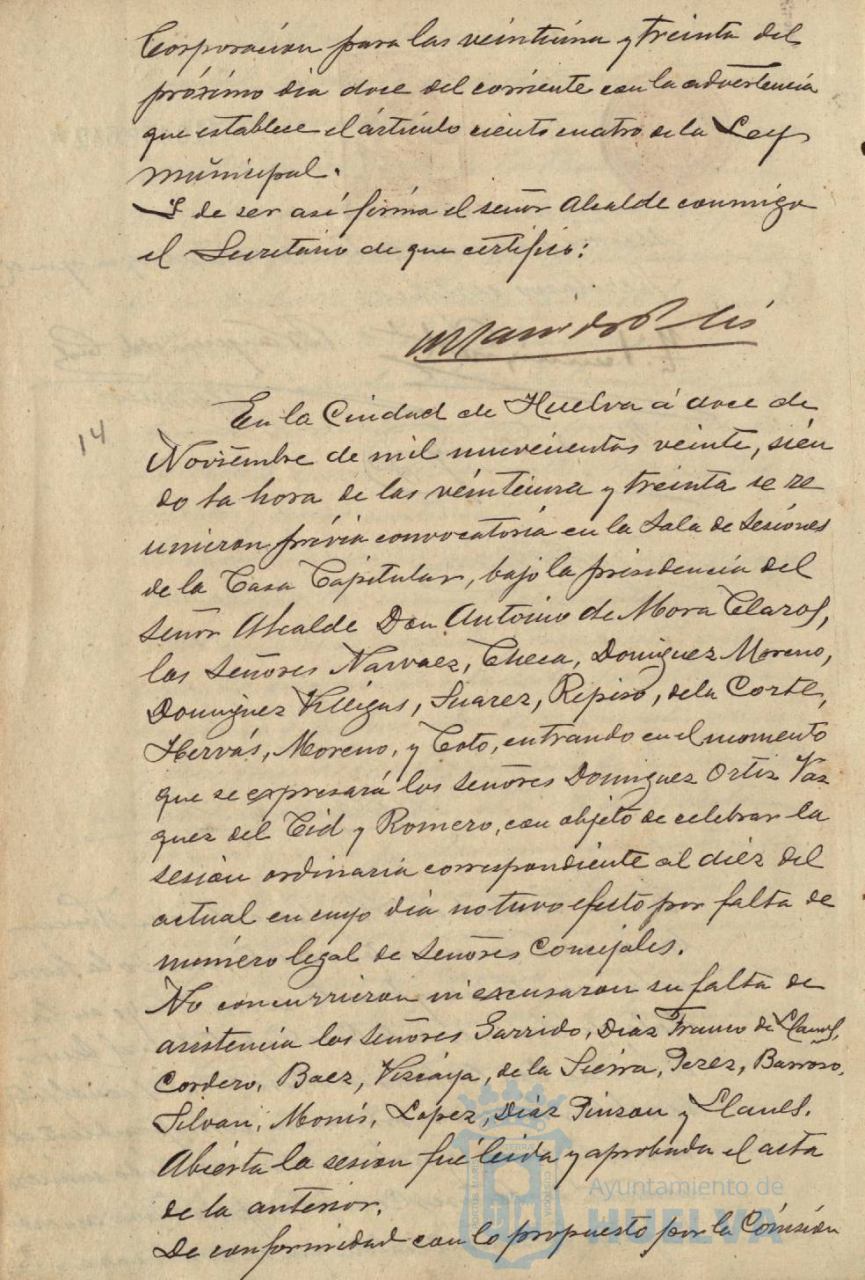 Corporación para las veintiuna y treinta del
próximo dia doce del corriente con la advertencia
que establece el artículo ciento cuatro de la Ley
municipal.
Y de ser así firma el señor Alcalde conmigo
el Secretario de que certifico:
14
En la Ciudad de Huelva á doce de
Noviembre de mil novecientos veinte, sien
do la hora de las veintiuna y treinta se re
unieron prévia convocatoria en la Sala de Sesiones
de la Casa Capitular, bajo la presidencia del
Señor Alcalde Don Antonio de Mora Claros,
los Señores Narvaez, Checa, Dominguez Moreno,
Dominguez Villegas, Suarez, Repiso, de la Corte,
Hervás, Moreno, y Coto, entrando en el momento
que se expresará los señores Dominguez Ortiz Vaz
quez del Cid y Romero, con objeto de celebrar la
sesión ordinaria correspondiente al diez del
actual en cuyo dia no tuvo efecto por falta de
número legal de Señores Concejales.
No concurrieron ni excusaron su falta de
asistencia los Señores Garrido, Diaz Franco de Llanes,
Cordero, Baez, Vizcaya, de la Sierra, Perez, Barroso,
Silvan, Monís, Lopez, Diaz Pinzon y Llanes.
Abierta la sesion fué leida y aprobada el acta
de la anterior.
De conformidad con lo propuesto por la Comisión
Ayuntamiento de
HUELVA